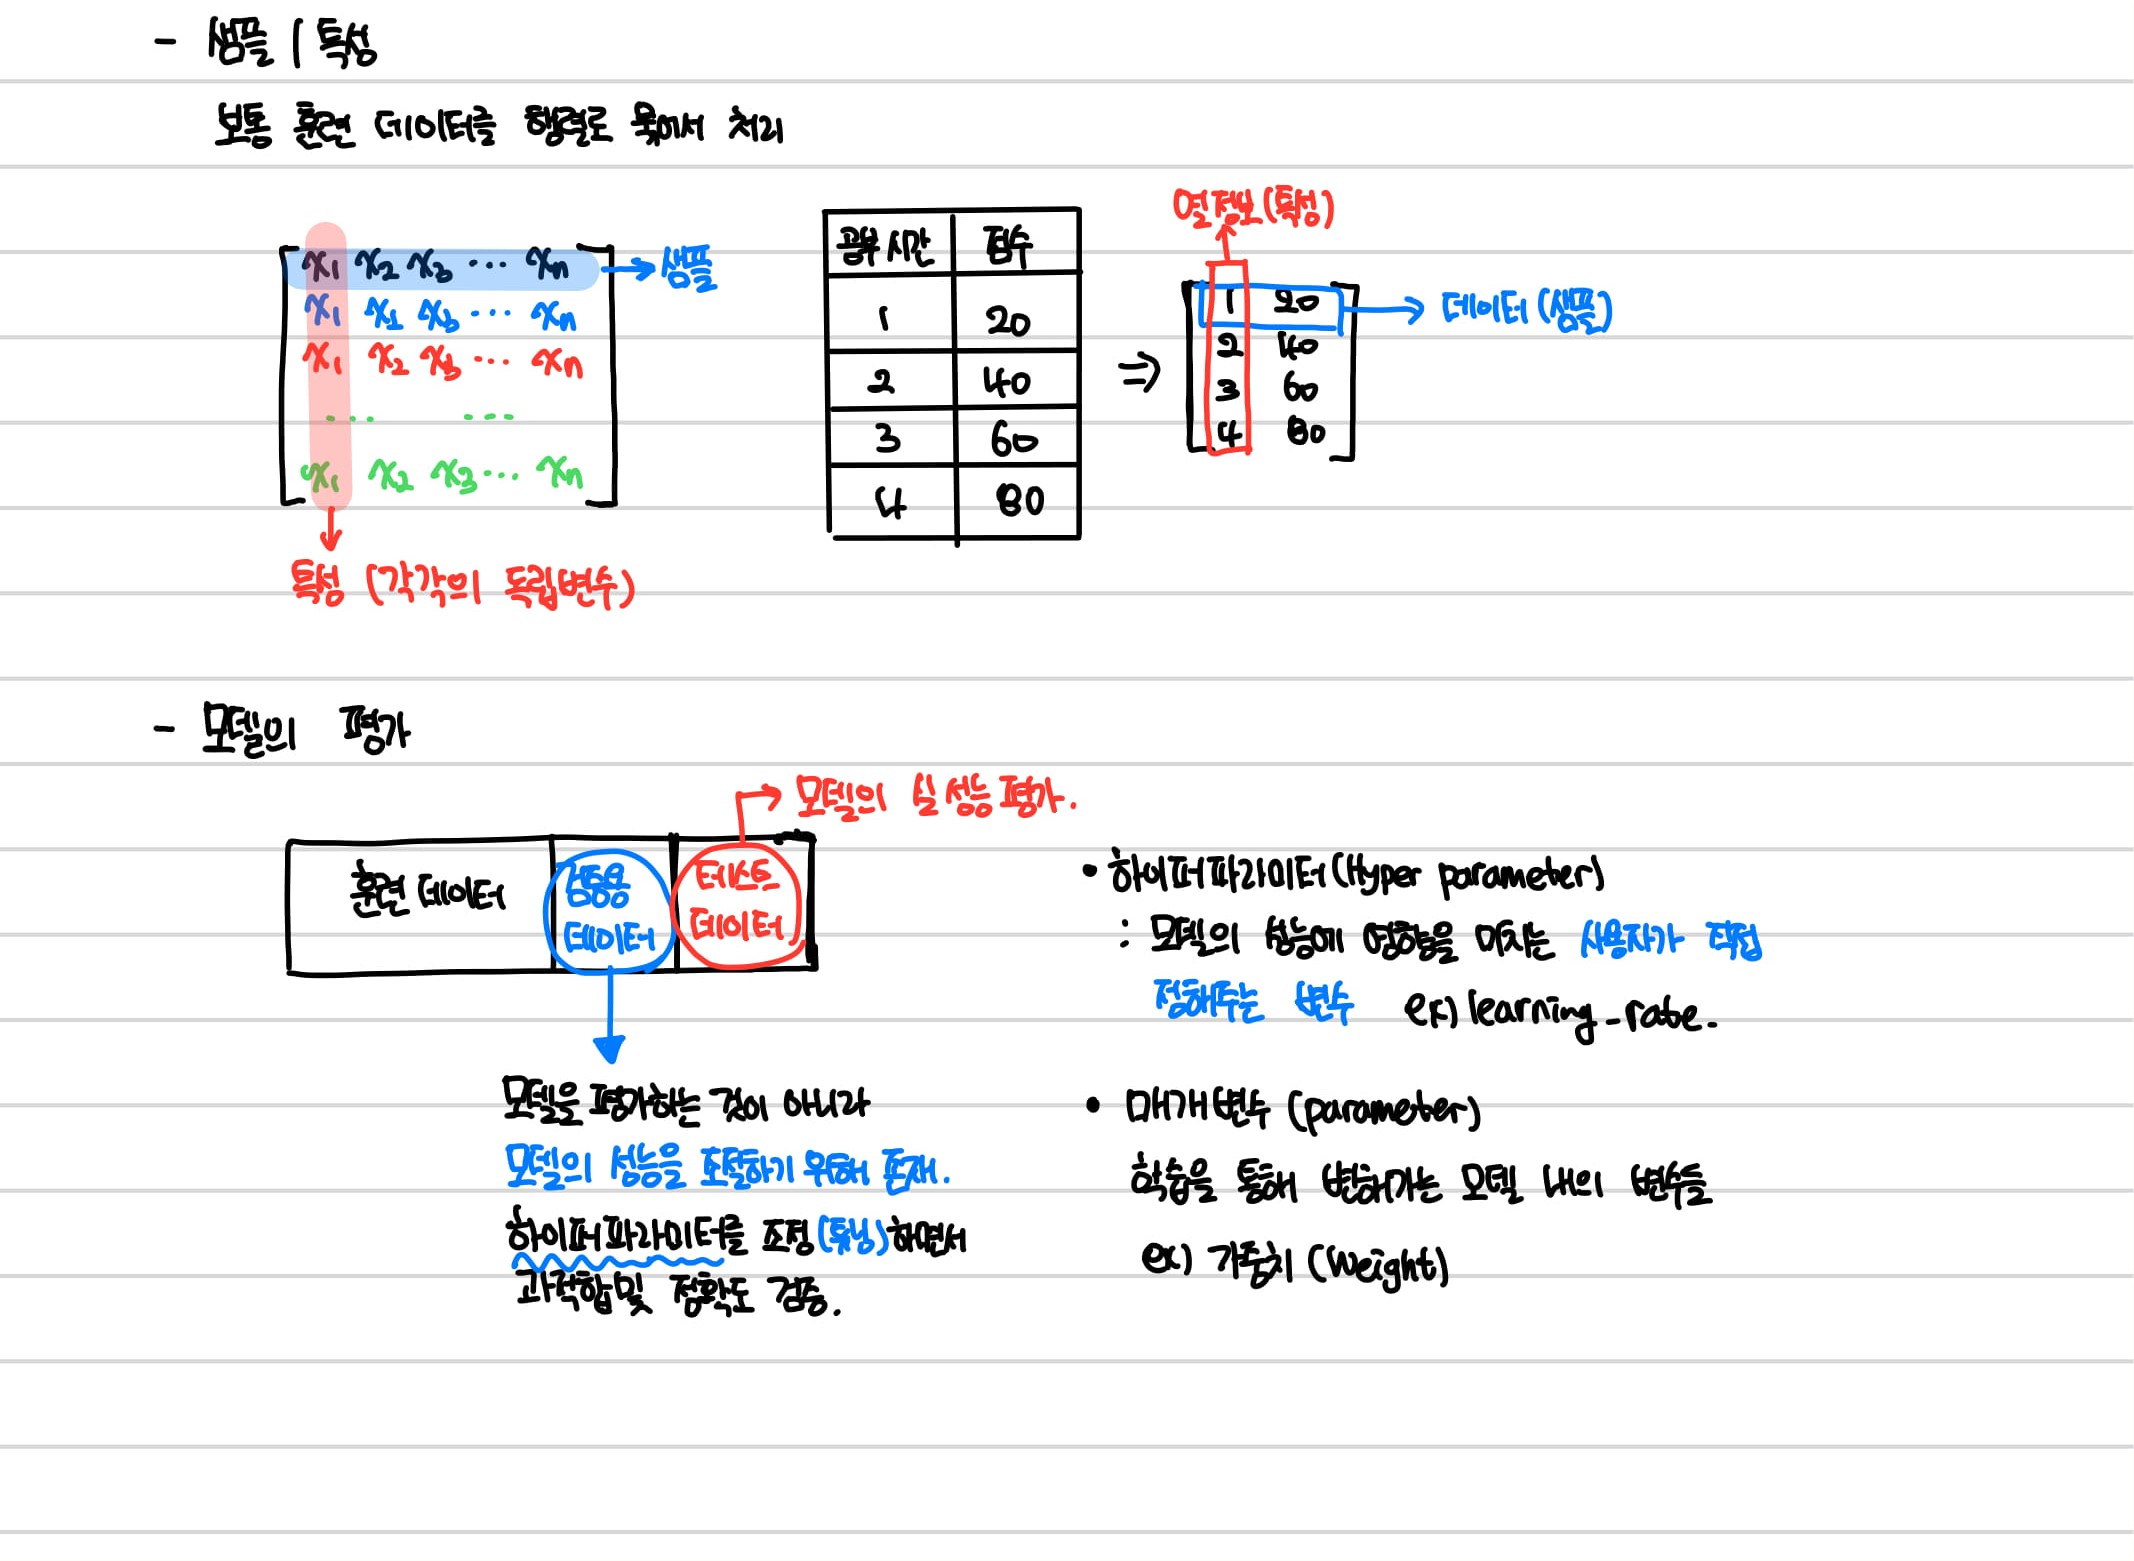 - 샘플 | 특성
보통 훈련 데이터를 행렬로 묶어서 처리
x₁ x₂ x₃ ... xₙ → 샘플
x₁ x₂ x₃ ... xₙ
x₁ x₂ x₃ ... xₙ
... ...
x₁ x₂ x₃ ... xₙ
특성 (각각의 독립변수)
공부시간 점수
1 20
2 40
3 60
4 80
⇒
열정보(특성)
1 20 → 데이터(샘플)
2 40
3 60
4 80
- 모델의 평가
→ 모델의 실 성능 평가.
훈련 데이터
검증용
데이터
테스트
데이터
모델을 평가하는 것이 아니라
모델의 성능을 조절하기 위해 존재.
하이퍼파라미터를 조정(튜닝)하면서
과적합 및 정확도 검증.
• 하이퍼파라미터(Hyper parameter)
: 모델의 성능에 영향을 미치는 사용자가 직접
정해주는 변수 ex) learning_rate.
• 매개변수 (parameter)
학습을 통해 변해가는 모델 내의 변수들
ex) 가중치 (Weight)